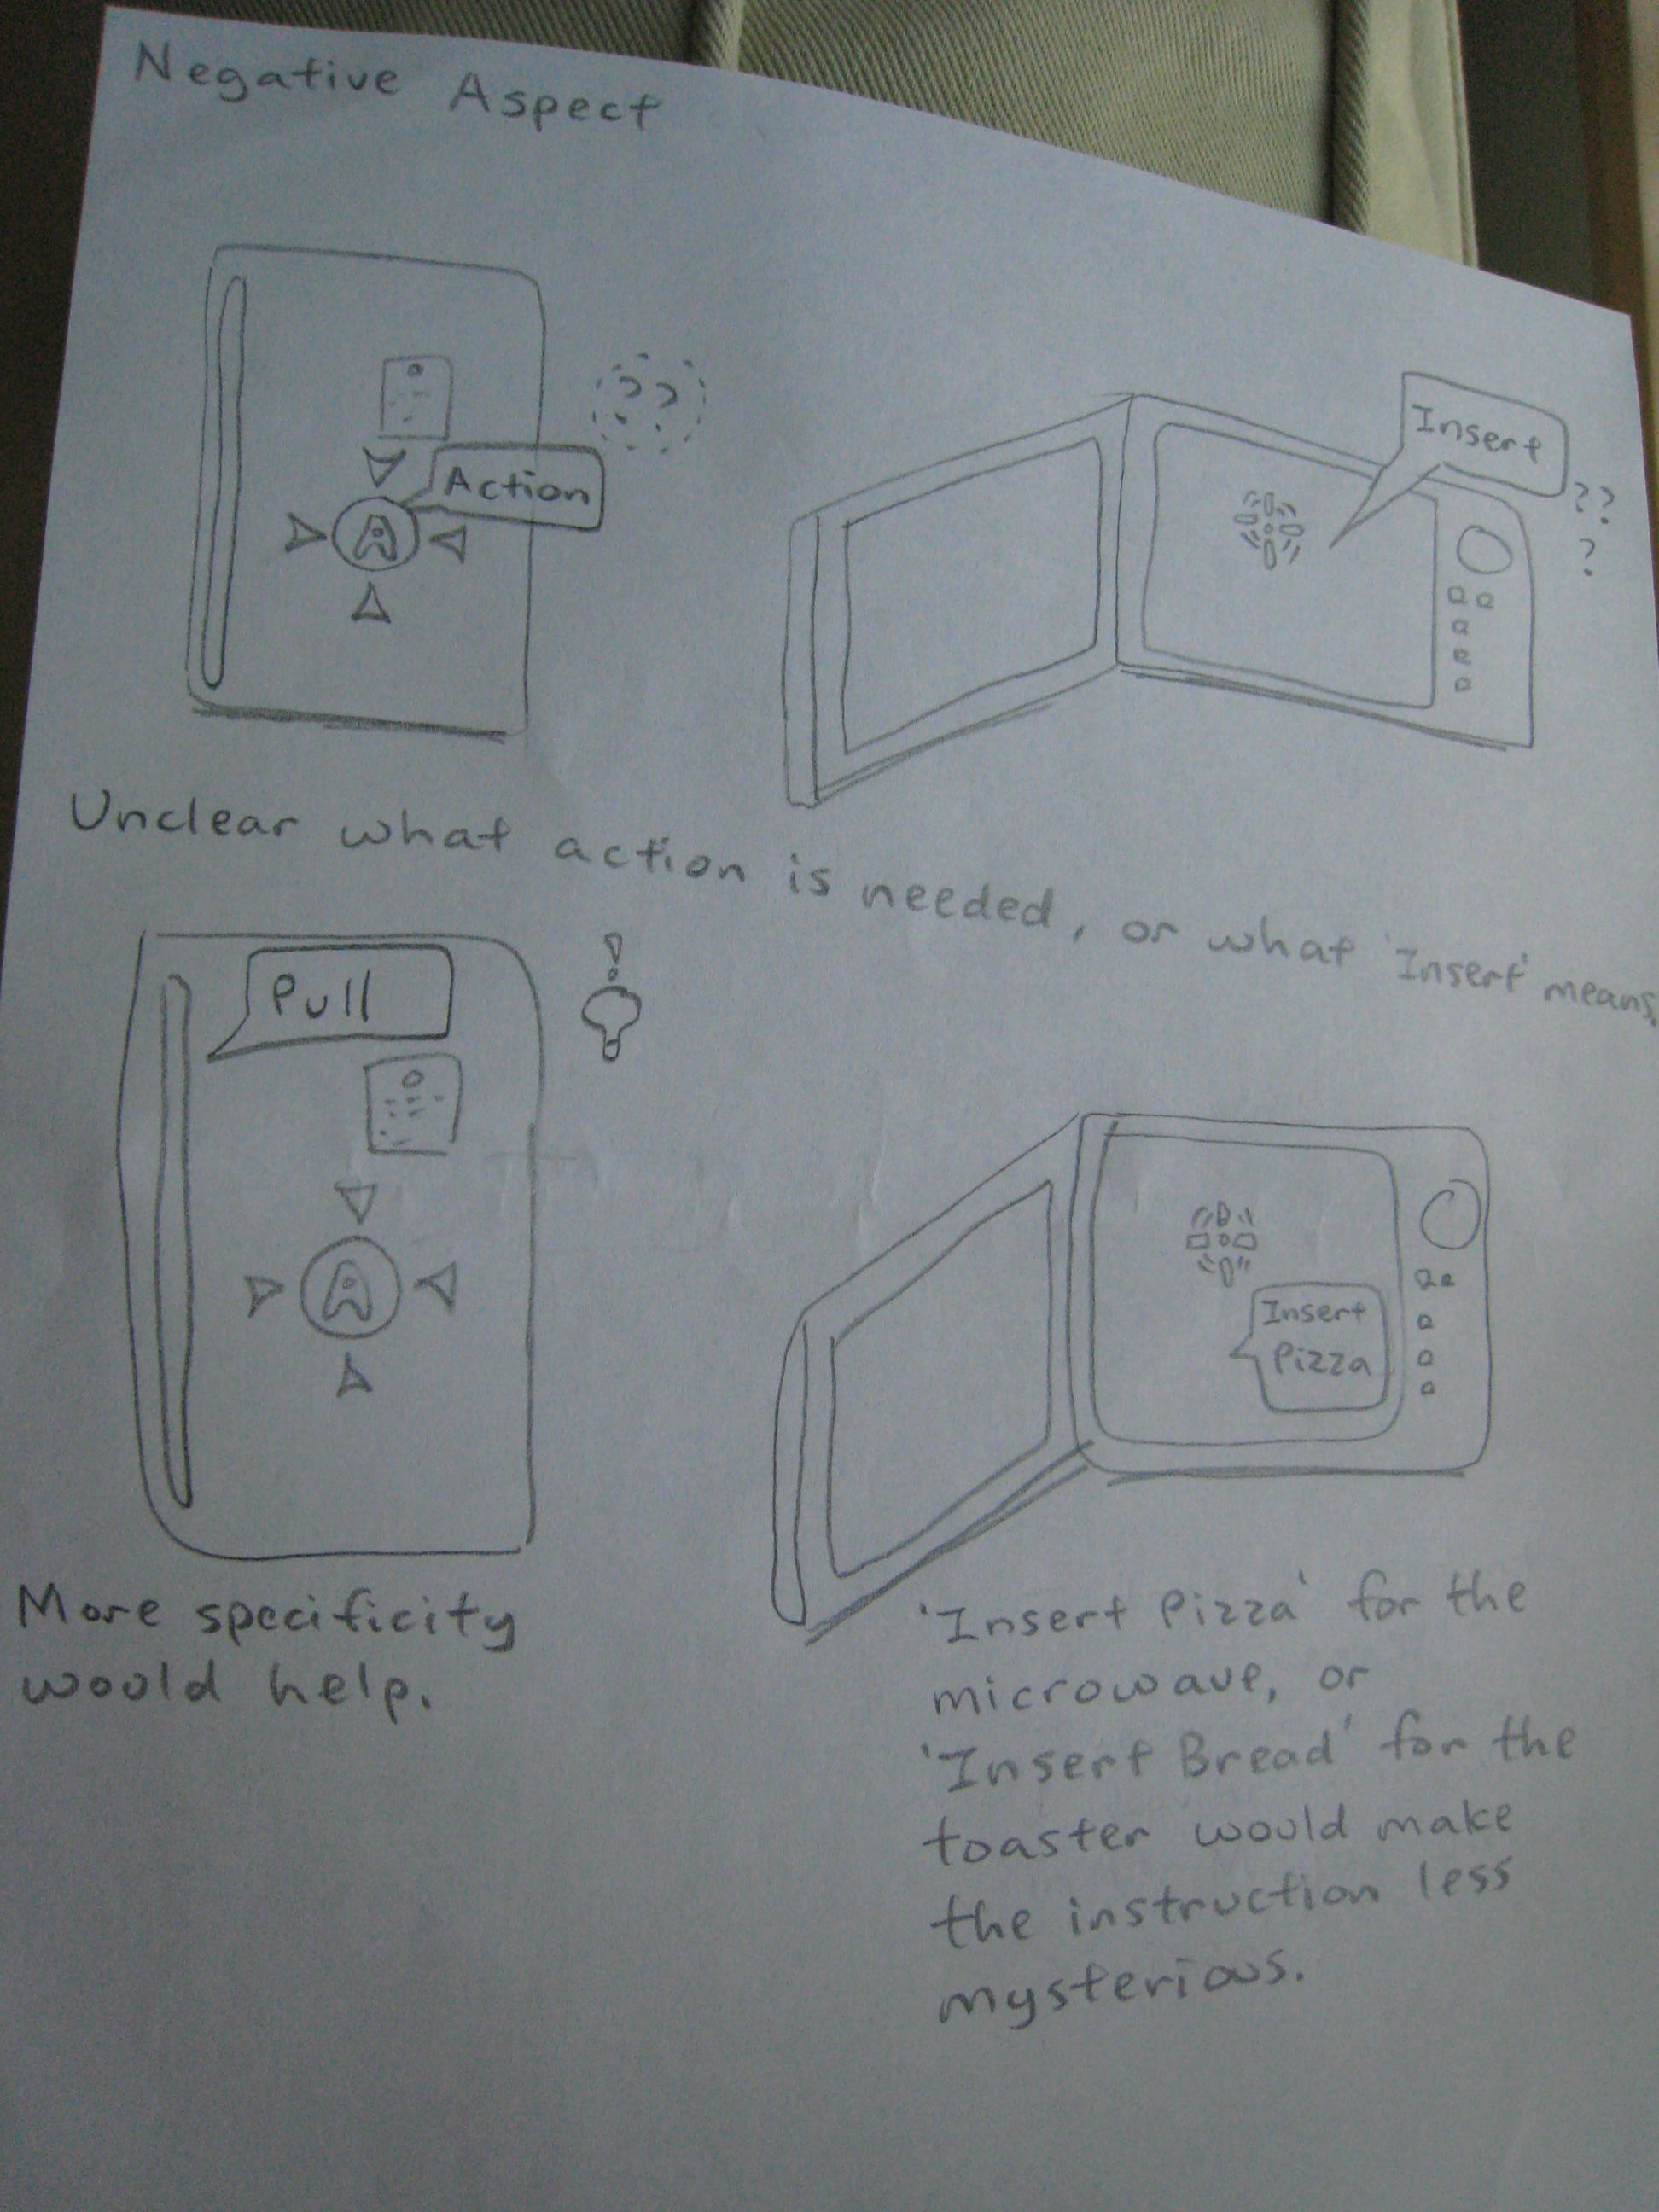 Negative Aspect
??
Action
A
Insert
??
?
Unclear what action is needed, or what 'Insert' means.
Pull
!
A
Insert
Pizza
More specificity
would help.
'Insert Pizza' for the
microwave, or
'Insert Bread' for the
toaster would make
the instruction less
mysterious.